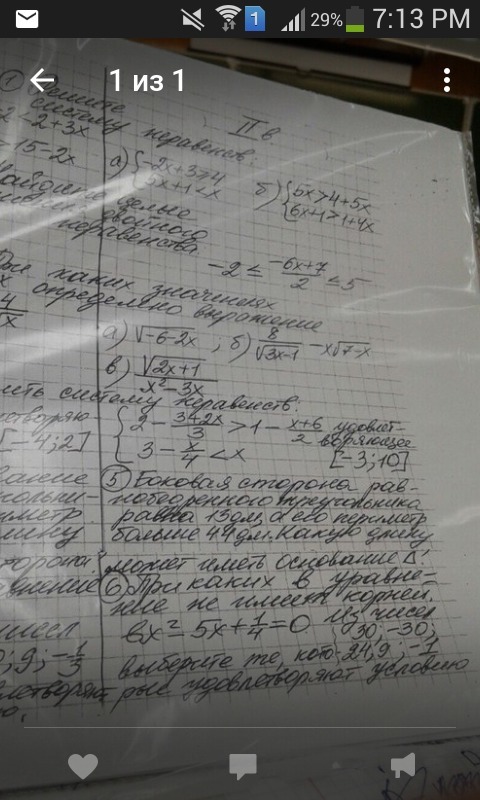 29% 7:13 PM
1 из 1
II в.
① Решите
систему неравенств:
2-2+3x
=15-2x
а) {-2x+3>4
5x+1<x
б) {5x>4+5x
6x+1>1+4x
Найдите целые
двойного
неравенства
-2 ≤ (-6x+7)/2 < 5
При каких значениях
x определено выражение
а) √-6-2x ; б) 8/√3x-1 - x√7-x
в) √2x+1/x²-3x
ить систему неравенств:
{2 - (3+2x)/3 > 1 - (x+6)/2 удовлет-
воряющее
3 - x/4 < x [-3;10]
етворяю-
[-4;2]
⑤ Боковая сторона рав-
нобедренного треугольника
равна 13дм, а его периметр
больше 44дм. Какую длину
может иметь основание Δ.
⑥ При каких в уравне-
ние не имеет корней.
вx²-5x+1/4=0. Из чисел
30; -30;
выберите те, кото- 24,9; -1/
рые удовлетворяют условию
периметр
длину
торона
внение
чисел
; 9; -1/3
летворяют